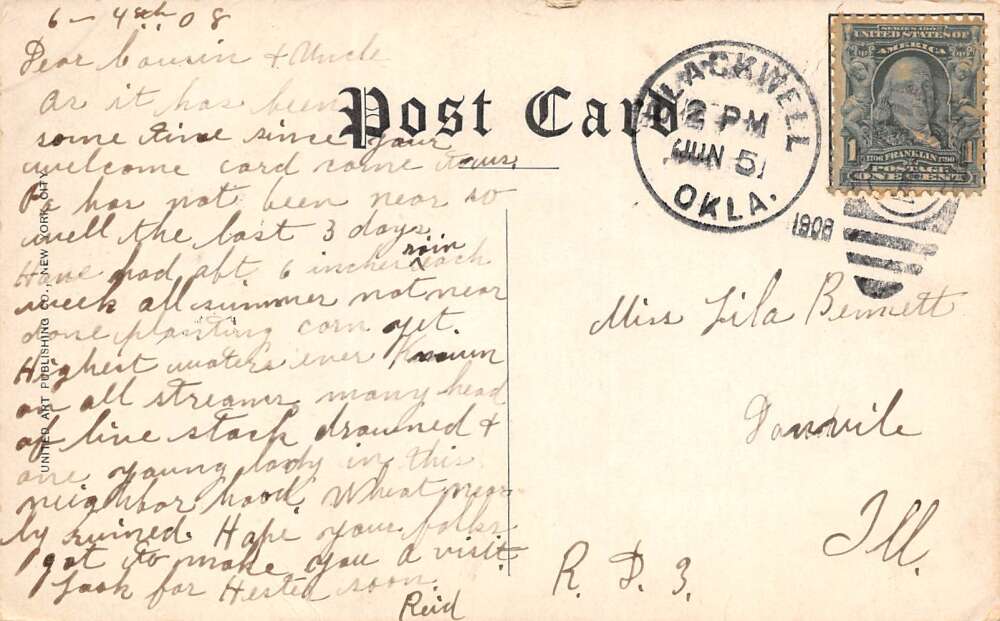 6 - 4th 08
Dear Cousin & Uncle
As it has been
some time since your
welcome card came to us.
Pa has not been near so
well the last 3 days.
Have had abt 6 inches rain each
week all summer not near
done planting corn yet.
Highest waters ever known
on all streams many head
of live stock drowned &
one young lady in this
neighborhood. Wheat near
ly ruined. Hope your folks
got to make you a visit.
Look for Hester soon.
Reid
Post Card
UNITED ART PUBLISHING CO., NEW YORK CITY
BLACKWELL
12 PM
JUN 5
OKLA.
1908
SERIES 1902
UNITED STATES OF
AMERICA
1706 FRANKLIN 1790
1 POSTAGE 1
ONE CENT
Miss Lila Bennett
Danvile
Ill.
R. D. 3.